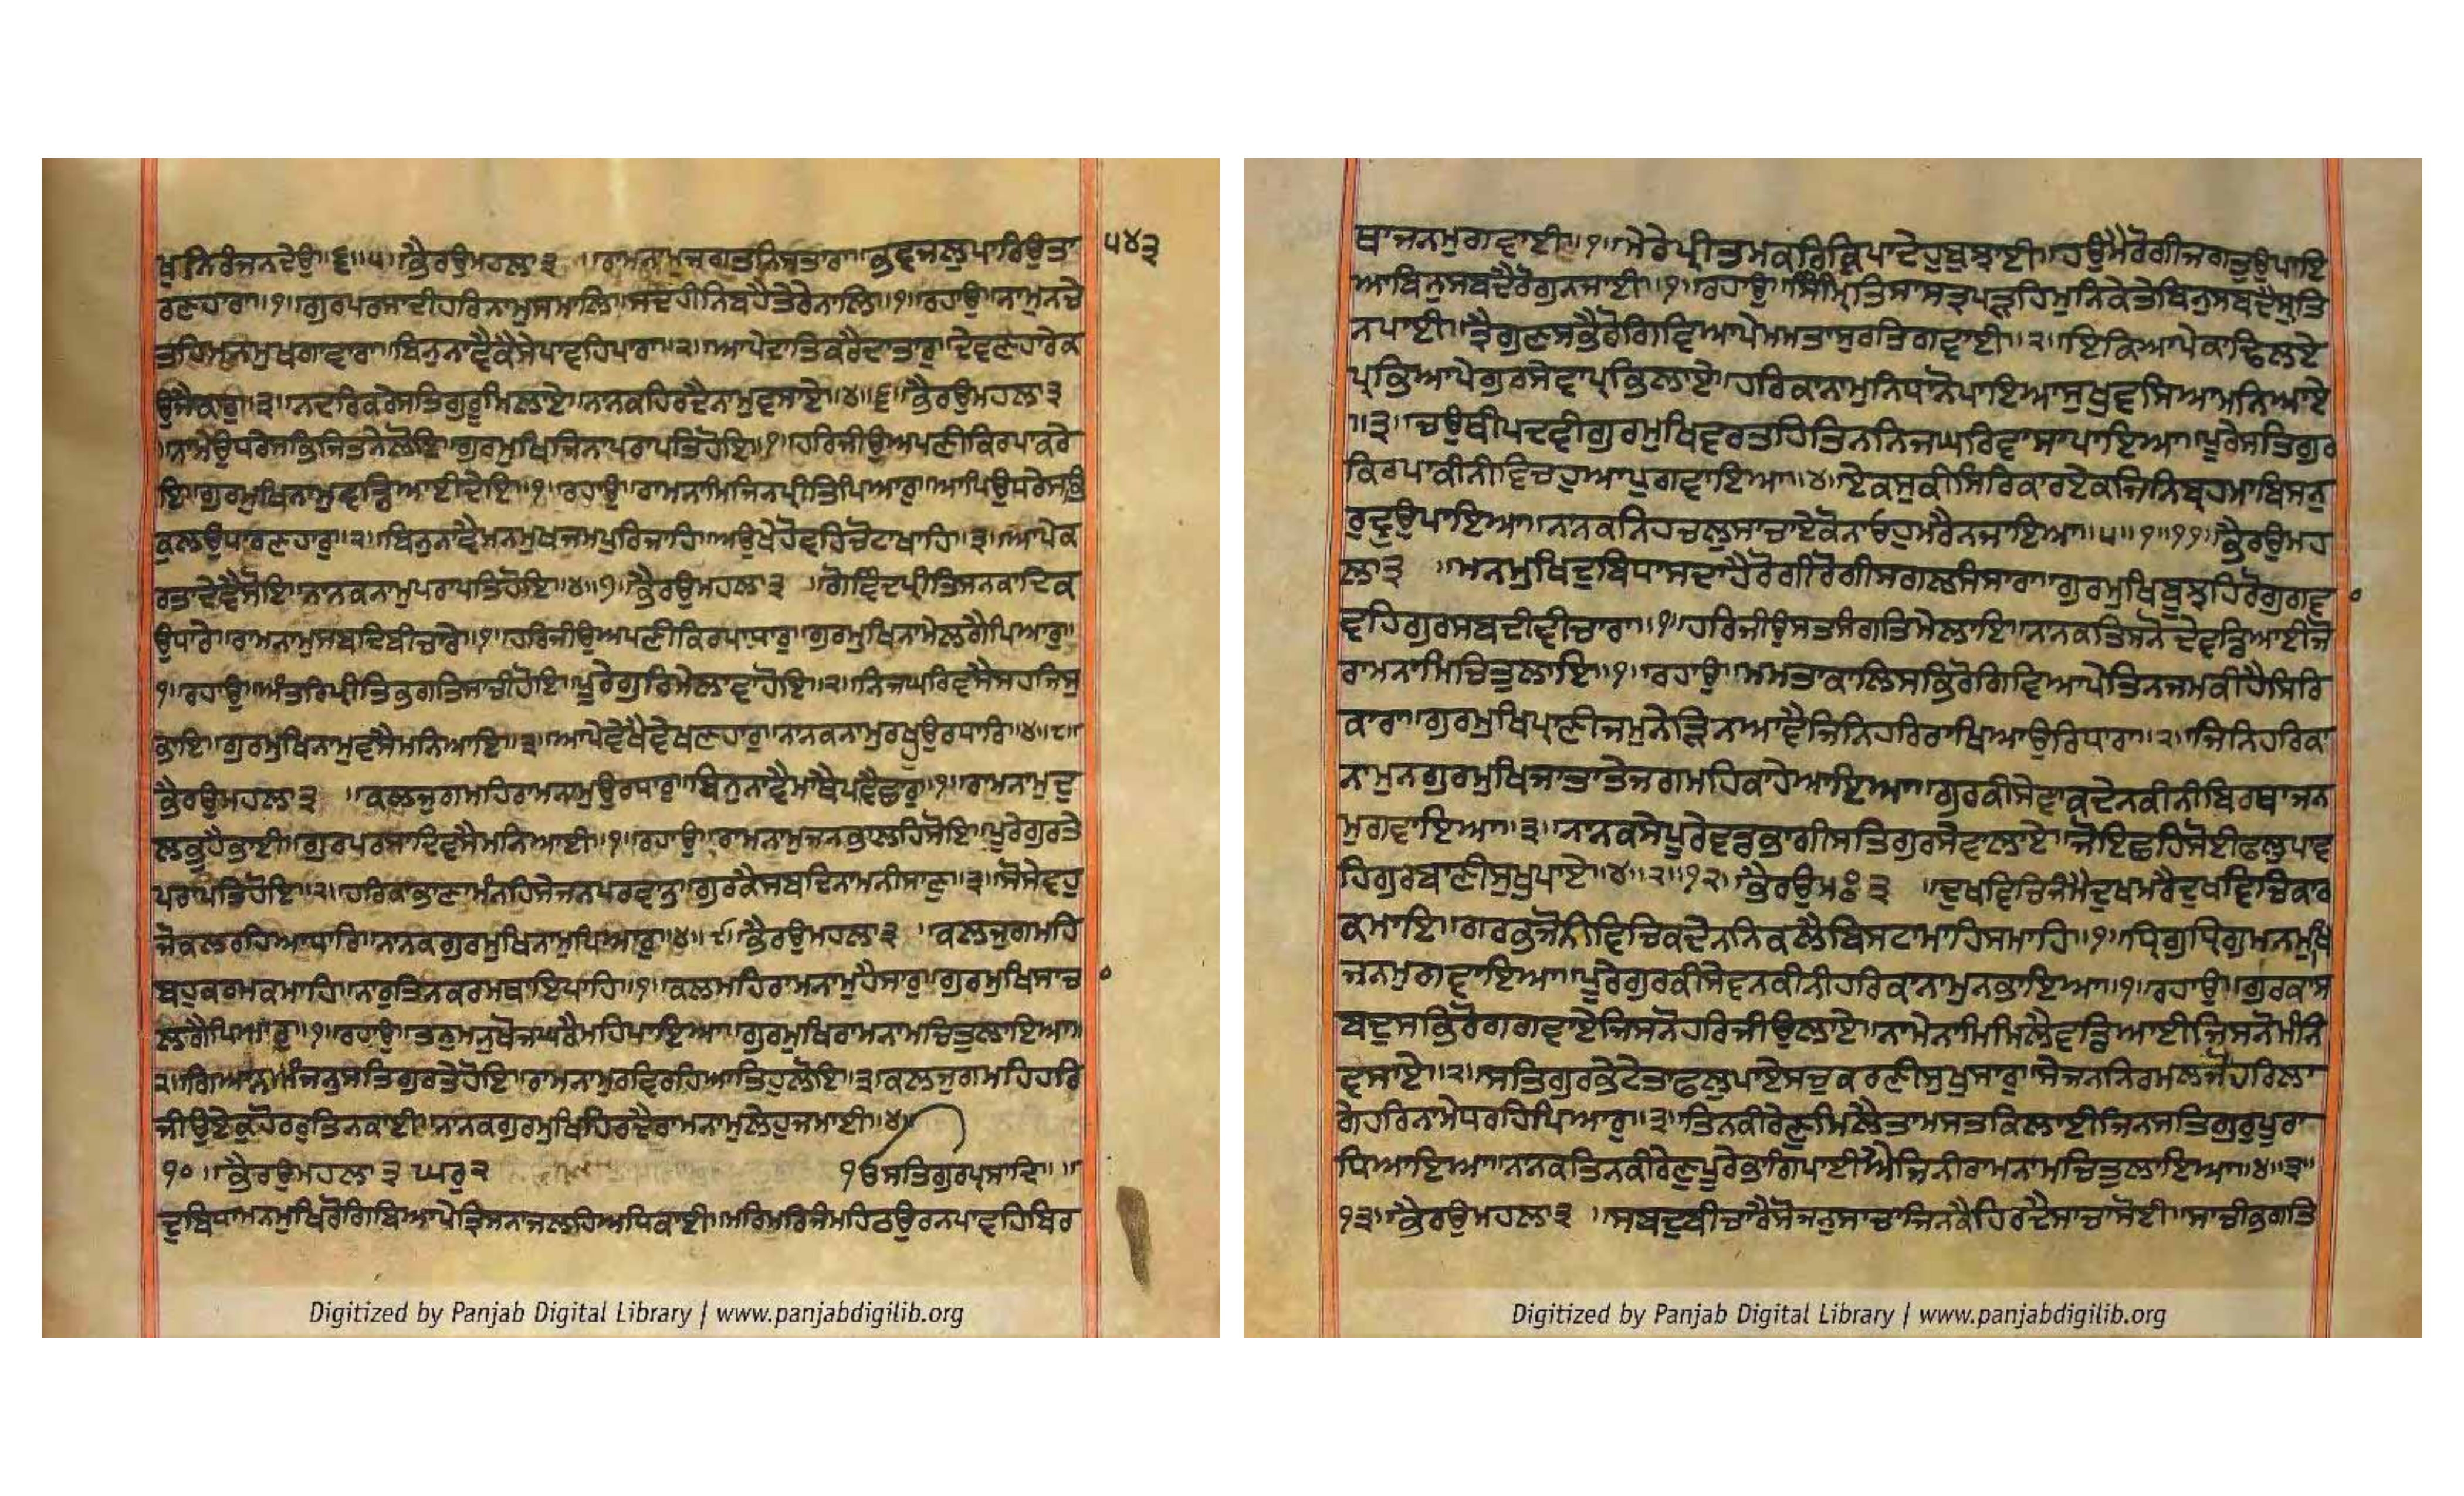 ਖੁਨਿਰੰਜਨਦੇਉ॥੬॥੫॥ਭੈਰਉਮਹਲਾ੩ ॥ਰਾਮਨਾਮੁਜਗਤਨਿਸਤਾਰਾ॥ਭਵਜਲੁਪਾਰਿਉਤਾ ੫੪੩
ਰਣਹਾਰਾ॥੧॥ਗੁਰਪਰਸਾਦੀਹਰਿਨਾਮੁਸਮਾਲਿ॥ਸਦਹੀਨਿਬਹੈਤੇਰੇਨਾਲਿ॥੧॥ਰਹਾਉ॥ਨਾਮੁਨਚੇ
ਤਹਿਮਨਮੁਖਗਾਵਾਰਾ॥ਬਿਨੁਨਾਵੈਕੈਸੇਪਾਵਹਿਪਾਰਾ॥੨॥ਆਪੇਦਾਤਿਕਰੈਦਾਤਾਰੁ॥ਦੇਵਣਹਾਰੇਕ
ਉਜੈਕਾਰੁ॥੩॥ਨਦਰਿਕਰੇਸਤਿਗੁਰੂਮਿਲਾਏ॥ਨਾਨਕਹਿਰਦੈਨਾਮੁਵਸਾਏ॥੪॥੬॥ਭੈਰਉਮਹਲਾ੩
॥ਨਾਮੇਉਧਰੇਸਭਿਜਿਤਨੇਲੋਇ॥ਗੁਰਮੁਖਿਜਿਨਾਪਰਾਪਤਿਹੋਇ॥੧॥ਹਰਿਜੀਉਅਪਣੀਕਿਰਪਾਕਰੇ
ਇ॥ਗੁਰਮੁਖਿਨਾਮੁਵਡਿਆਈਦੇਇ॥੧॥ਰਹਾਉ॥ਰਾਮਨਾਮਿਜਿਨਪ੍ਰੀਤਿਪਿਆਰੁ॥ਆਪਿਉਧਰੇਸਭਿ
ਕੁਲਉਧਾਰਣਹਾਰੁ॥੨॥ਬਿਨੁਨਾਵੈਮਨਮੁਖਜਮਪੁਰਿਜਾਹਿ॥ਅਉਖੇਹੋਵਹਿਚੋਟਾਖਾਹਿ॥੩॥ਆਪੇਕ
ਰਤਾਦੇਵੈਸੋਇ॥ਨਾਨਕਨਾਮੁਪਰਾਪਤਿਹੋਇ॥੪॥੭॥ਭੈਰਉਮਹਲਾ੩ ॥ਗੋਵਿੰਦਪ੍ਰੀਤਿਸਨਕਾਦਿਕ
ਉਧਾਰੇ॥ਰਾਮਨਾਮੁਸਬਦਿਬੀਚਾਰੇ॥੧॥ਹਰਿਜੀਉਅਪਣੀਕਿਰਪਾਧਾਰੁ॥ਗੁਰਮੁਖਿਨਾਮੇਲਗੈਪਿਆਰੁ॥
੧॥ਰਹਾਉ॥ਅੰਤਰਿਪ੍ਰੀਤਿਭਗਤਿਸਾਚੀਹੋਇ॥ਪੂਰੇਗੁਰਿਮੇਲਾਵਾਹੋਇ॥੨॥ਨਿਜਘਰਿਵਸੈਸਹਜਿਸੁ
ਭਾਇ॥ਗੁਰਮੁਖਿਨਾਮੁਵਸੈਮਨਿਆਇ॥੩॥ਆਪੇਵੇਖੈਵੇਖਣਹਾਰੁ॥ਨਾਨਕਨਾਮੁਰਖੁਉਰਧਾਰਿ॥੪॥੮॥
ਭੈਰਉਮਹਲਾ੩ ॥ਕਲਜੁਗਮਹਿਰਾਮਨਾਮੁਉਰਧਾਰੁ॥ਬਿਨੁਨਾਵੈਮਾਥੈਪਾਵੈਛਾਰੁ॥੧॥ਰਾਮਨਾਮੁਦੁ
ਲਭੁਹੈਭਾਈ॥ਗੁਰਪਰਸਾਦਿਵਸੈਮਨਿਆਈ॥੧॥ਰਹਾਉ॥ਰਾਮਨਾਮੁਜਨਭਾਲਹਿਸੋਇ॥ਪੂਰੇਗੁਰਤੇ
ਪਰਾਪਤਿਹੋਇ॥੨॥ਹਰਿਕਾਭਾਣਾਮੰਨਹਿਸੇਜਨਪਰਵਾਨੁ॥ਗੁਰਕੈਸਬਦਿਨਾਮਨੀਸਾਣੁ॥੩॥ਸੋਸੇਵਹੁ
ਜੋਕਲਰਹਿਆਧਾਰਿ॥ਨਾਨਕਗੁਰਮੁਖਿਨਾਮੁਪਿਆਰੁ॥੪॥੯॥ਭੈਰਉਮਹਲਾ੩ ॥ਕਲਜੁਗਮਹਿ
ਬਹੁਕਰਮਕਮਾਹਿ॥ਨਾਰੁਤਿਨਕਰਮਥਾਇਪਾਹਿ॥੧॥ਕਲਮਹਿਰਾਮਨਾਮੁਹੈਸਾਰੁ॥ਗੁਰਮੁਖਿਸਾਚ
ਲਗੈਪਿਆਰੁ॥੧॥ਰਹਾਉ॥ਤਨੁਮਨੁਖੋਜਘਰੈਮਹਿਪਾਇਆ॥ਗੁਰਮੁਖਿਰਾਮਨਾਮਚਿਤੁਲਾਇਆ॥
੨॥ਗਿਆਨਅੰਜਨੁਸਤਿਗੁਰਤੇਹੋਇ॥ਰਾਮਨਾਮੁਰਵਿਰਹਿਆਤਿਹੁਲੋਇ॥੩॥ਕਲਜੁਗਮਹਿਹਰਿ
ਜੀਉਏਕੁਹੋਰਰੁਤਿਨਕਾਈ॥ਨਾਨਕਗੁਰਮੁਖਿਹਿਰਦੈਰਾਮਨਾਮੁਲੇਹੁਜਮਾਈ॥੪॥
੧੦॥ਭੈਰਉਮਹਲਾ੩ ਘਰੁ੨ ੴਸਤਿਗੁਰਪ੍ਰਸਾਦਿ॥॥
ਦੁਬਿਧਾਮਨਮੁਖਿਰੋਗਿਬਿਆਪੇਤ੍ਰਿਸਨਾਜਲਹਿਅਧਿਕਾਈ॥ਮਰਿਮਰਿਜੰਮਹਿਠਉਰਨਪਾਵਹਿਬਿਰ
ਥਾਜਨਮੁਗਵਾਈ॥੧॥ਮੇਰੇਪ੍ਰੀਤਮਕਰਿਕ੍ਰਿਪਾਦੇਹੁਬੁਝਾਈ॥ਹਉਮੈਰੋਗੀਜਗਤੁਉਪਾਇ
ਆਬਿਨੁਸਬਦੈਰੋਗੁਨਜਾਈ॥੧॥ਰਹਾਉ॥ਸਿੰਮ੍ਰਿਤਿਸਾਸਤ੍ਰਪੜਹਿਮੁਨਿਕੇਤੇਬਿਨੁਸਬਦੈਸੁਰਤਿ
ਨਪਾਈ॥ਤ੍ਰੈਗੁਣਸਭੈਰੋਗਿਵਿਆਪੇਮਮਤਾਸੁਰਤਿਗਵਾਈ॥੨॥ਇਕਿਆਪੇਕਾਢਿਲਏ
ਪ੍ਰਭਿਆਪੇਗੁਰਸੇਵਾਪ੍ਰਭਿਲਾਏ॥ਹਰਿਕਾਨਾਮੁਨਿਧਾਨੋਪਾਇਆਸੁਖੁਵਸਿਆਮਨਿਆਏ
॥੩॥ਚਉਥੀਪਦਵੀਗੁਰਮੁਖਿਵਰਤਹਿਤਿਨਨਿਜਘਰਿਵਾਸਾਪਾਇਆ॥ਪੂਰੇਸਤਿਗੁਰ
ਕਿਰਪਾਕੀਨੀਵਿਚਹੁਆਪੁਗਵਾਇਆ॥੪॥ਏਕਸੁਕੀਸਿਰਿਕਾਰਏਕਜਿਨਿਬ੍ਰਹਮਾਬਿਸਨੁ
ਰੁਦ੍ਰੁਉਪਾਇਆ॥ਨਾਨਕਨਿਹਚਲੁਸਾਚਾਏਕੋਨਾਓਹੁਮਰੈਨਜਾਇਆ॥੫॥੧॥੧੧॥ਭੈਰਉਮਹ
ਲਾ੩ ॥ਮਨਮੁਖਿਦੁਬਿਧਾਸਦਾਹੈਰੋਗੀਰੋਗੀਸਗਲਸੰਸਾਰਾ॥ਗੁਰਮੁਖਿਬੂਝਹਿਰੋਗੁਗਵਾ
ਵਹਿਗੁਰਸਬਦੀਵੀਚਾਰਾ॥੧॥ਹਰਿਜੀਉਸਤਸੰਗਤਿਮੇਲਾਇ॥ਨਾਨਕਤਿਸਨੋਦੇਵਡਿਆਈਜੋ
ਰਾਮਨਾਮਿਚਿਤੁਲਾਇ॥੧॥ਰਹਾਉ॥ਮਮਤਾਕਾਲਿਸਭਿਰੋਗਿਵਿਆਪੇਤਿਨਜਮਕੀਹੈਸਿਰਿ
ਕਾਰਾ॥ਗੁਰਮੁਖਿਪ੍ਰਾਣੀਜਮੁਨੇੜਿਨਆਵੈਜਿਨਿਹਰਿਰਾਖਿਆਉਰਿਧਾਰਾ॥੨॥ਜਿਨਿਹਰਿਕਾ
ਨਾਮੁਨਗੁਰਮੁਖਿਜਾਤਾਤੇਜਗਮਹਿਕਾਹੇਆਇਆ॥ਗੁਰਕੀਸੇਵਾਕਦੇਨਕੀਨੀਬਿਰਥਾਜਨ
ਮੁਗਵਾਇਆ॥੩॥ਨਾਨਕਸੇਪੂਰੇਵਡਭਾਗੀਸਤਿਗੁਰਸੇਵਾਲਾਏ॥ਜੋਇਛਹਿਸੋਈਫਲੁਪਾਵ
ਹਿਗੁਰਬਾਣੀਸੁਖੁਪਾਏ॥੪॥੨॥੧੨॥ਭੈਰਉਮਃ੩ ॥ਦੁਖਵਿਚਿਜੰਮੈਦੁਖਮਰੈਦੁਖਵਿਚਿਕਾਰ
ਕਮਾਇ॥ਗਰਭਜੋਨੀਵਿਚਿਕਦੇਨਨਿਕਲੈਬਿਸਟਾਮਾਹਿਸਮਾਹਿ॥੧॥ਧ੍ਰਿਗੁਧ੍ਰਿਗੁਮਨਮੁਖਿ
ਜਨਮੁਗਵਾਇਆ॥ਪੂਰੇਗੁਰਕੀਸੇਵਨਕੀਨੀਹਰਿਕਾਨਾਮੁਨਭਾਇਆ॥੧॥ਰਹਾਉ॥ਗੁਰਕਾਸ
ਬਦੁਸਭਿਰੋਗਗਵਾਏਜਿਸਨੋਹਰਿਜੀਉਲਾਏ॥ਨਾਮੇਨਾਮਿਮਿਲੈਵਡਿਆਈਜਿਸਨੋਮੰਨਿ
ਵਸਾਏ॥੨॥ਸਤਿਗੁਰਭੇਟੈਤਾਫਲੁਪਾਏਸਚੁਕਰਣੀਸੁਖੁਸਾਰੁ॥ਸੇਜਨਨਿਰਮਲਜੋਹਰਿਲਾ
ਗੇਹਰਿਨਾਮੇਧਰਹਿਪਿਆਰੁ॥੩॥ਤਿਨਕੀਰੇਣੁਮਿਲੈਤਾਮਸਤਕਿਲਾਈਜਿਨਸਤਿਗੁਰੁਪੂਰਾ
ਧਿਆਇਆ॥ਨਾਨਕਤਿਨਕੀਰੇਣੁਪੂਰੈਭਾਗਿਪਾਈਐਜਿਨੀਰਾਮਨਾਮਚਿਤੁਲਾਇਆ॥੪॥੩॥
੧੩॥ਭੈਰਉਮਹਲਾ੩ ॥ਸਬਦੁਬੀਚਾਰੇਸੋਜਨੁਸਾਚਾਜਿਨਕੈਹਿਰਦੈਸਾਚਾਸੋਈ॥ਸਾਚੀਭਗਤਿ
Digitized by Panjab Digital Library | www.panjabdigilib.org
Digitized by Panjab Digital Library | www.panjabdigilib.org